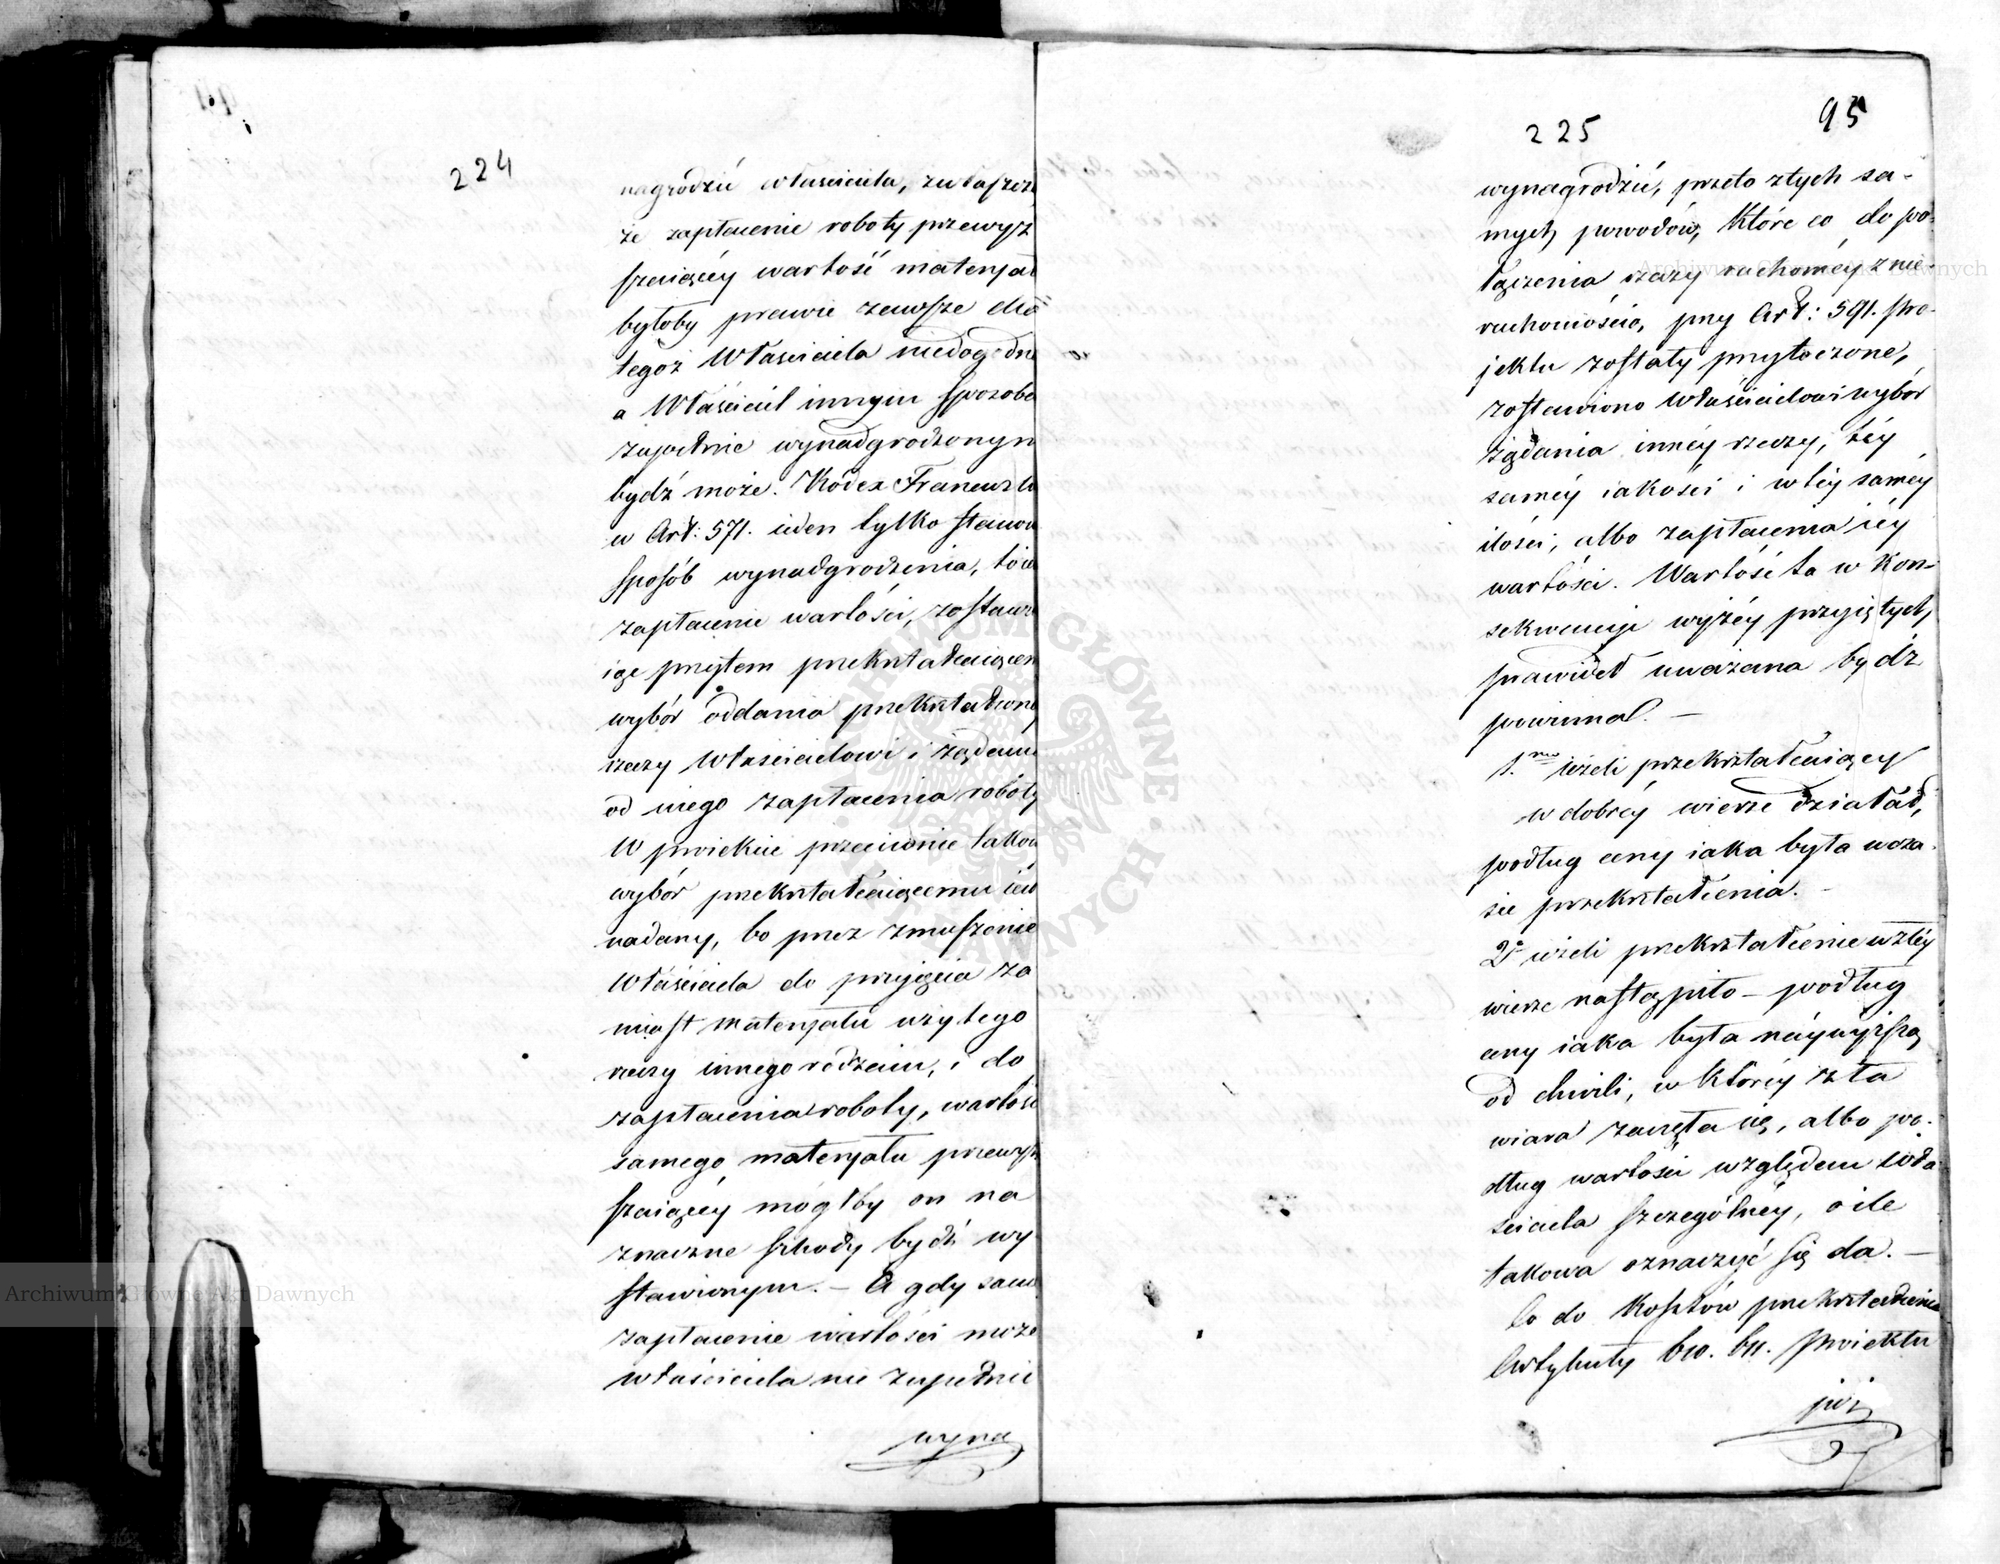 224
nagrodzić właściciela, zwłaszcza
że zapłacenie roboty przewyż
szaiącéy wartość materyał
byłoby prawie zawsze dla
tegoż Właściciela niedogodne
a Właściciel innym sposobe
zupełnie wynadgrodzonym
bydź może. Kodex Francuzki
w Art: 571. ieden tylko stanow
sposób wynadgrodzenia, to ies
zapłacenie wartości, zostawu
iąc przytem przekształcaiącem
wybór oddania przekształconey
rzeczy Właścicielowi i żądania
od niego zapłacenia roboty
W proiekcie przeciwnie takow
wybór przekształcaiącemu iest
nadany, bo przez zmuszenie
Właściciela do przyjęcia za
miast materyału użytego
rzeczy innego rodzaiu, i do
zapłacenia roboty, wartość
samego materyału przewyż
szaiącéy mógłby on na
znaczne szkody bydź wy
stawionym. – A gdy samo
zapłacenie wartości może
właściciela nie zupełnie
wyna
225
95
wynagrodzić, przeto z tych sa-
mych powodów, które co do po-
łączenia rzeczy ruchoméy z nie-
ruchomością, przy Art: 591. pro-
jektu zostały przytoczone,
zostawiono Właścicielowi wybór
żądania innéy rzeczy, téy
saméy iakości i w téy saméy
ilości, albo zapłacenia iéy
wartości. Wartość ta w kon-
sekwencyi wyżéy przyiętych
prawideł uważana bydź
powinna. –
1.mo ieżeli przekształcaiący
w dobréy wierze działał,
podług ceny iaka była w cza-
sie przekształcenia. –
2o ieżeli przekształcenie w złéy
wierze nastąpiło – podług
ceny iaka była náywyższą
od chwili, w któréy zła
wiara zaczęła się, albo po-
dług wartości względem wła
ściciela szczególnéy, o ile
takowa oznaczyć się da. –
Co do kosztów przekształcenia
Artykuły 610. 611. Proiektu